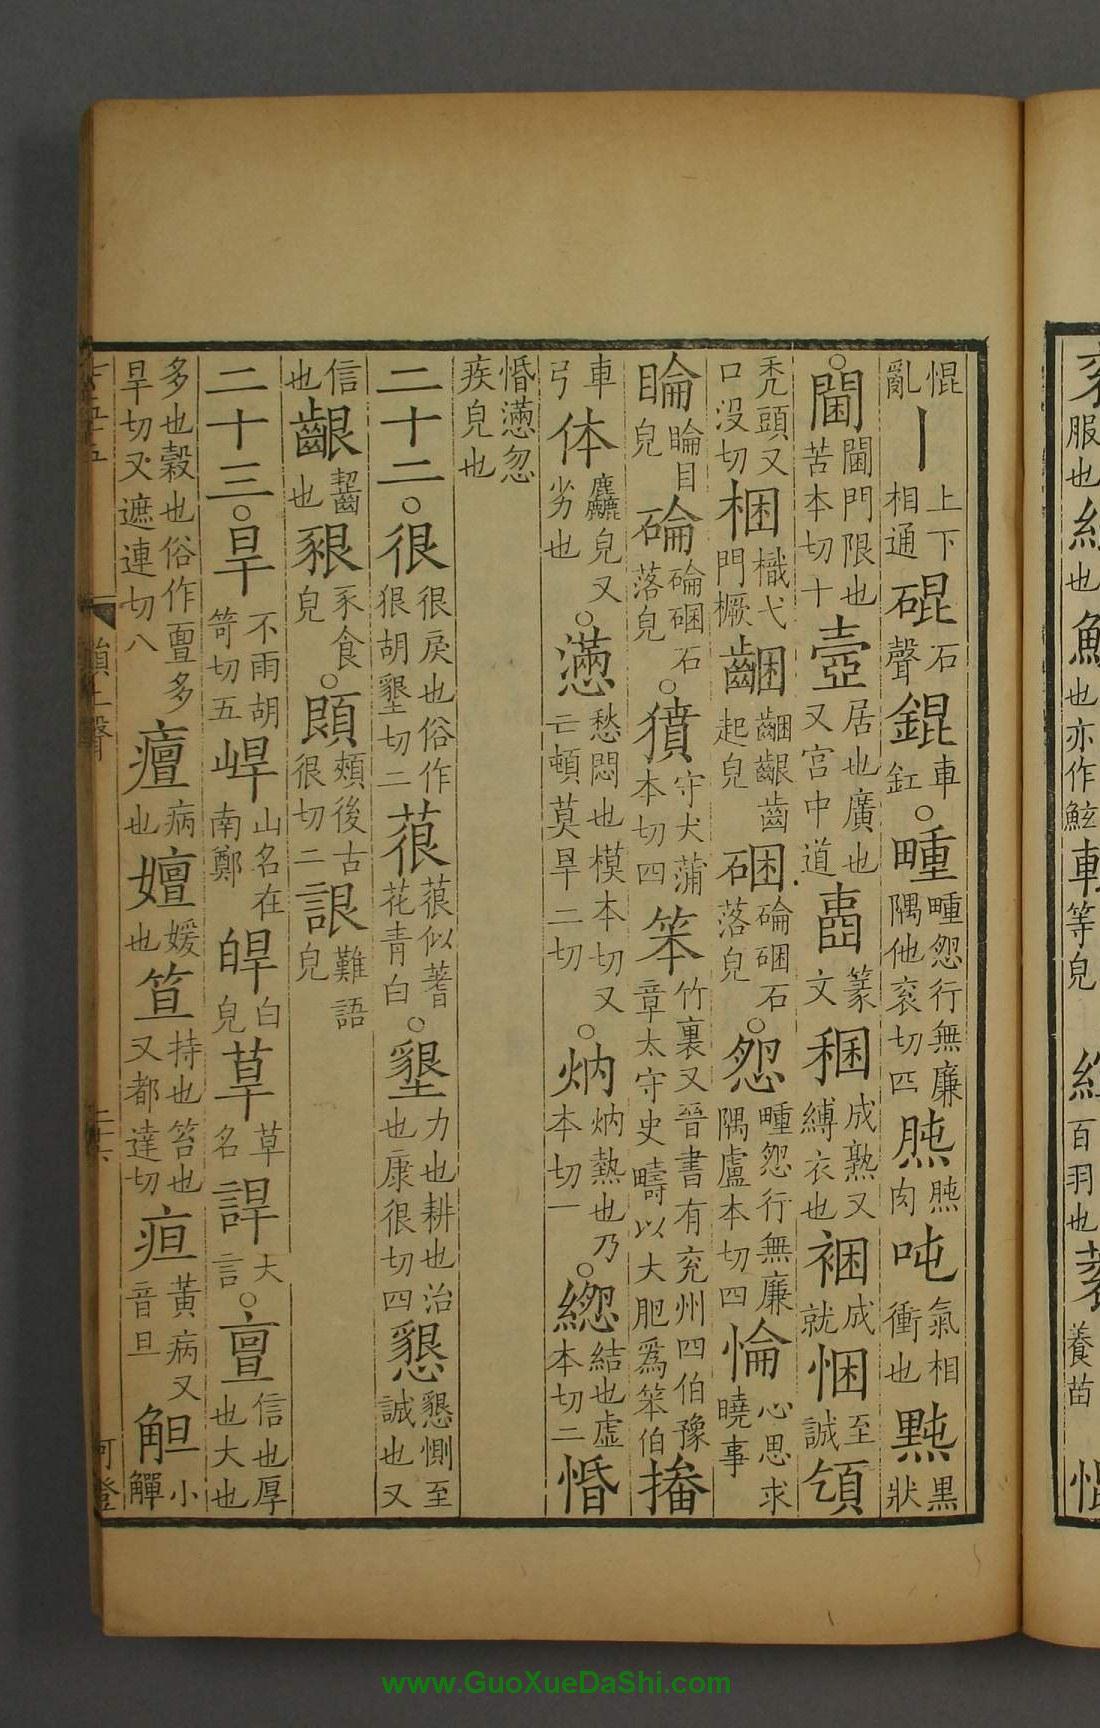 惃亂丨上下相通硍石聲錕車釭○畽畽怨行無廉隅他衮切四黗肉吨氣相衝也黗黑狀
○閫閫門限也苦本切十壼居也廣也又宮中道𡇬篆文稇成熟又縛衣也裍成就悃至誠頜
禿頭又口没切梱橶弋門橛齫齫齦齒起皃硱碖硱石落皃○怨畽怨行無廉隅盧本切四惀心思求曉事
睔睔目皃碖碖硱石落皃○獖守犬蒲本切四笨竹裏又晉書有兖州四伯豫章太守史疇以大肥爲笨伯𨋒
車弓体麤皃又劣也○懣愁悶也模本切又亡頓莫旱二切○炳炳熱也乃本切一○緫結也虚本切二惛
惛懣忽疾皃也
二十二○很很戾也俗作狠胡墾切二䓳䓳似蓍花青白○墾力也耕也治也康很切四懇懇惻至誠也又
信也齦齧也豤豕食皃○頣頰後古很切二詪難語皃
二十三○旱不雨胡笴切五㟁山名在南鄭皔白皃䓍草名䛞大言○亶信也厚也大也
多也穀也俗作亶多旱切又遮連切八癉病也嬗媛也笪持也笞也又都達切疸黄病又音旦觛小觶
www.GuoXueDaShi.com